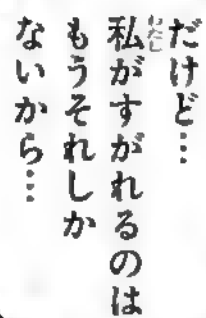 だけど…
私がすがれるのは
もうそれしか
ないから…